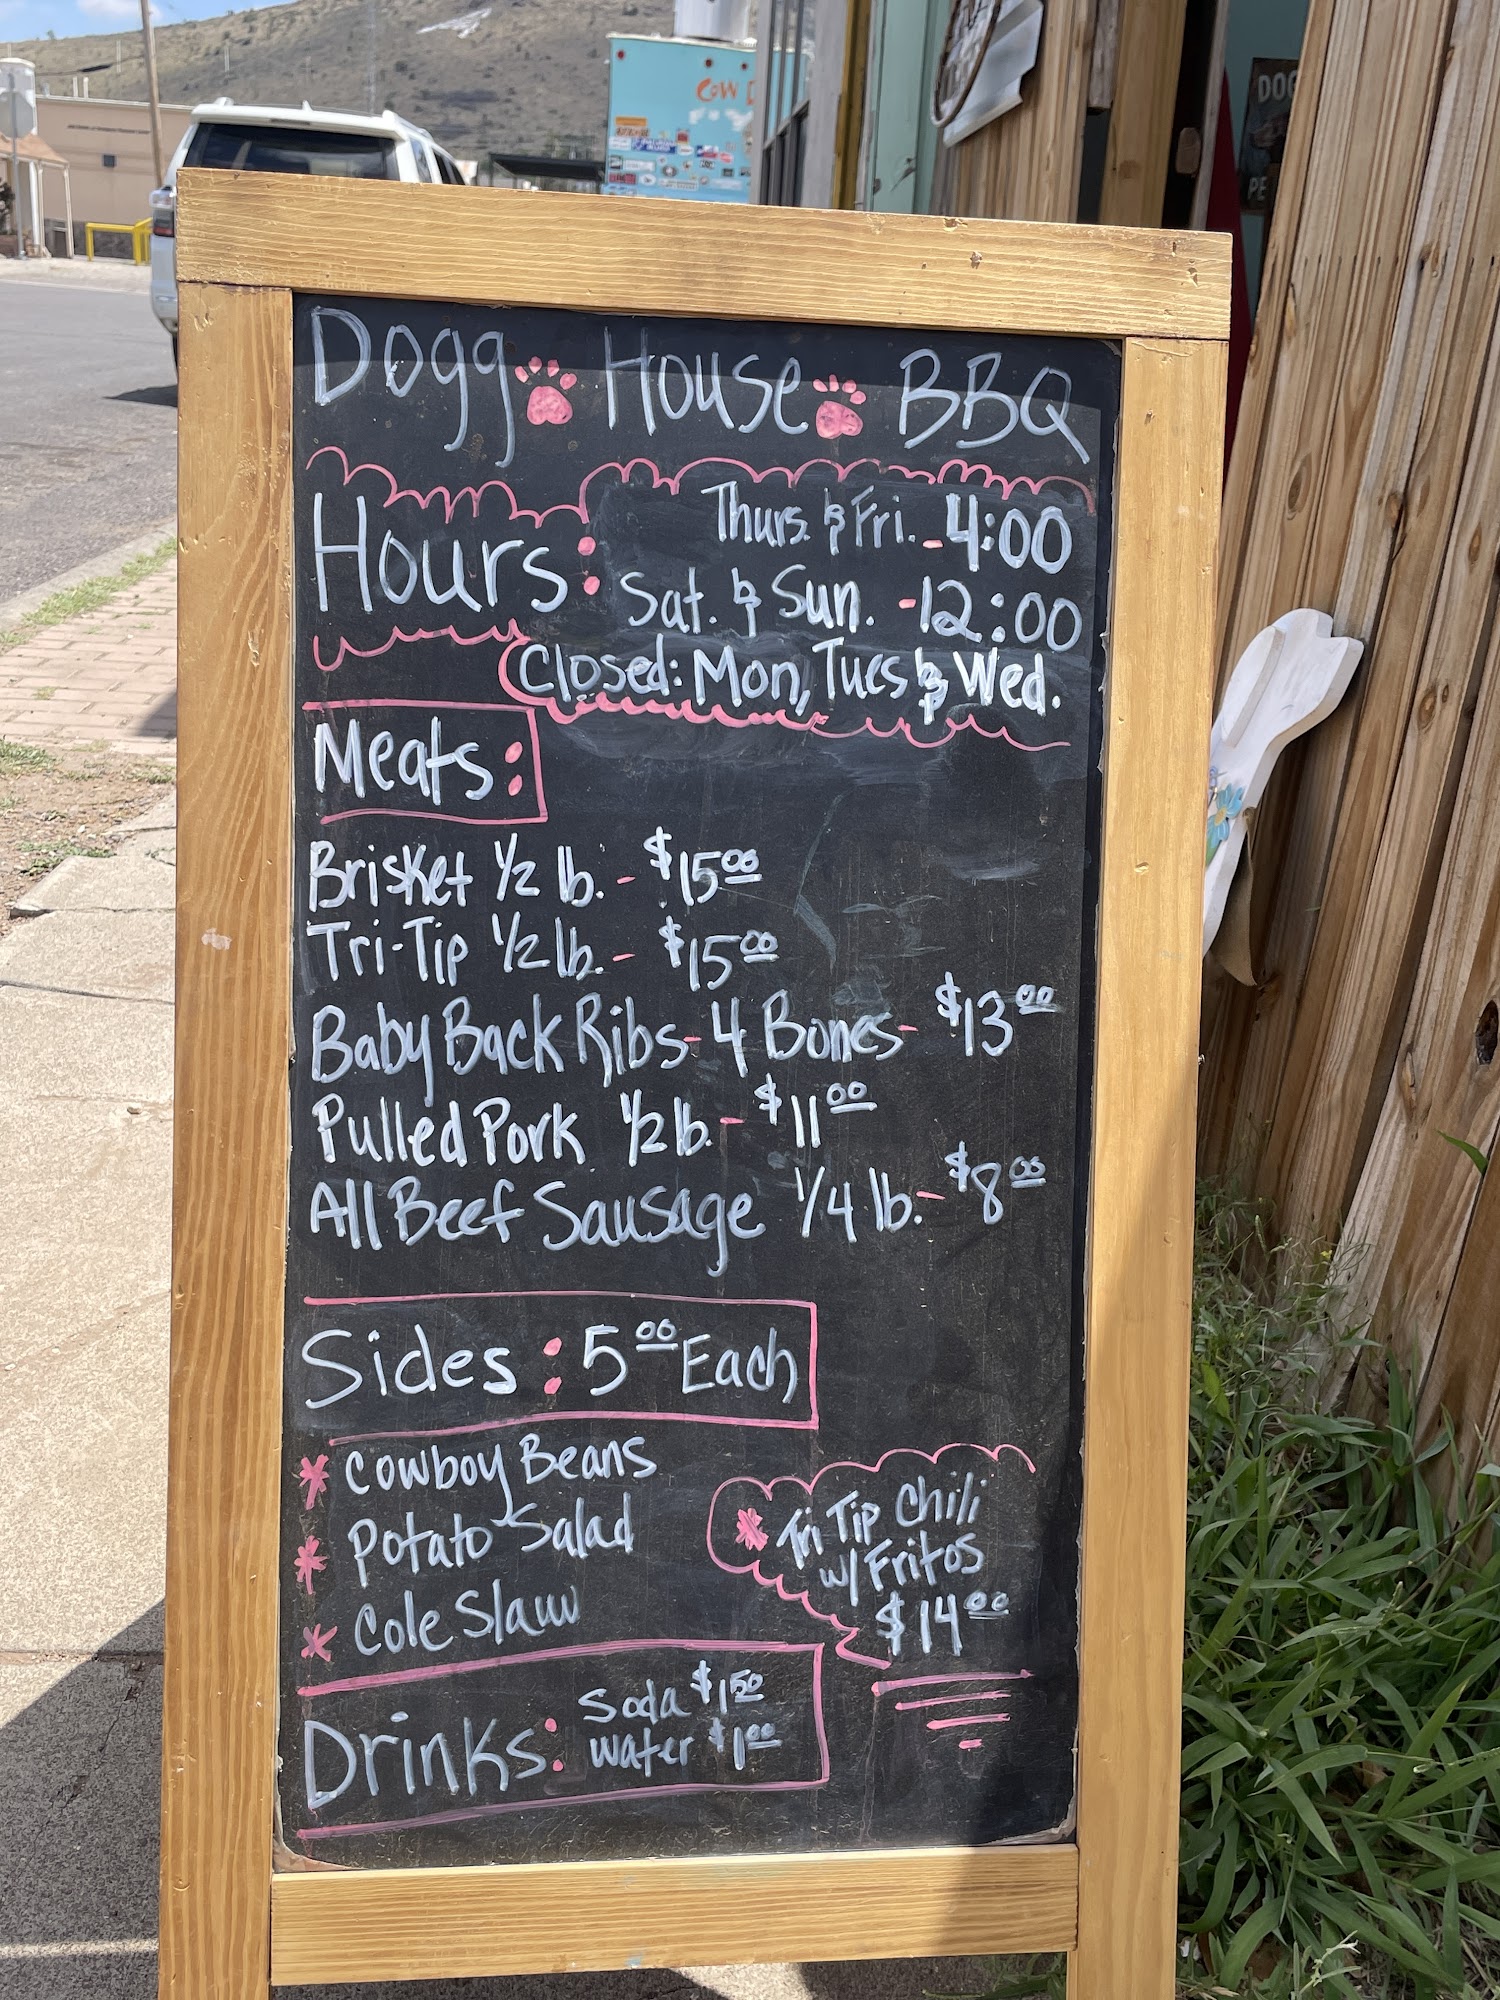 COW
DOG
PE
Dogg House BBQ
Hours: Thurs. & Fri. - 4:00
Sat. & Sun. - 12:00
Closed: Mon, Tues & Wed.
Meats:
Brisket 1/2 lb. - $15.00
Tri-Tip 1/2 lb. - $15.00
Baby Back Ribs - 4 Bones - $13.00
Pulled Pork 1/2 lb. - $11.00
All Beef Sausage 1/4 lb. - $8.00
Sides: 5.00 Each
* Cowboy Beans
* Potato Salad
* Cole Slaw
* Tri Tip Chili
w/Fritos
$14.00
Drinks: Soda $1.50
Water $1.00